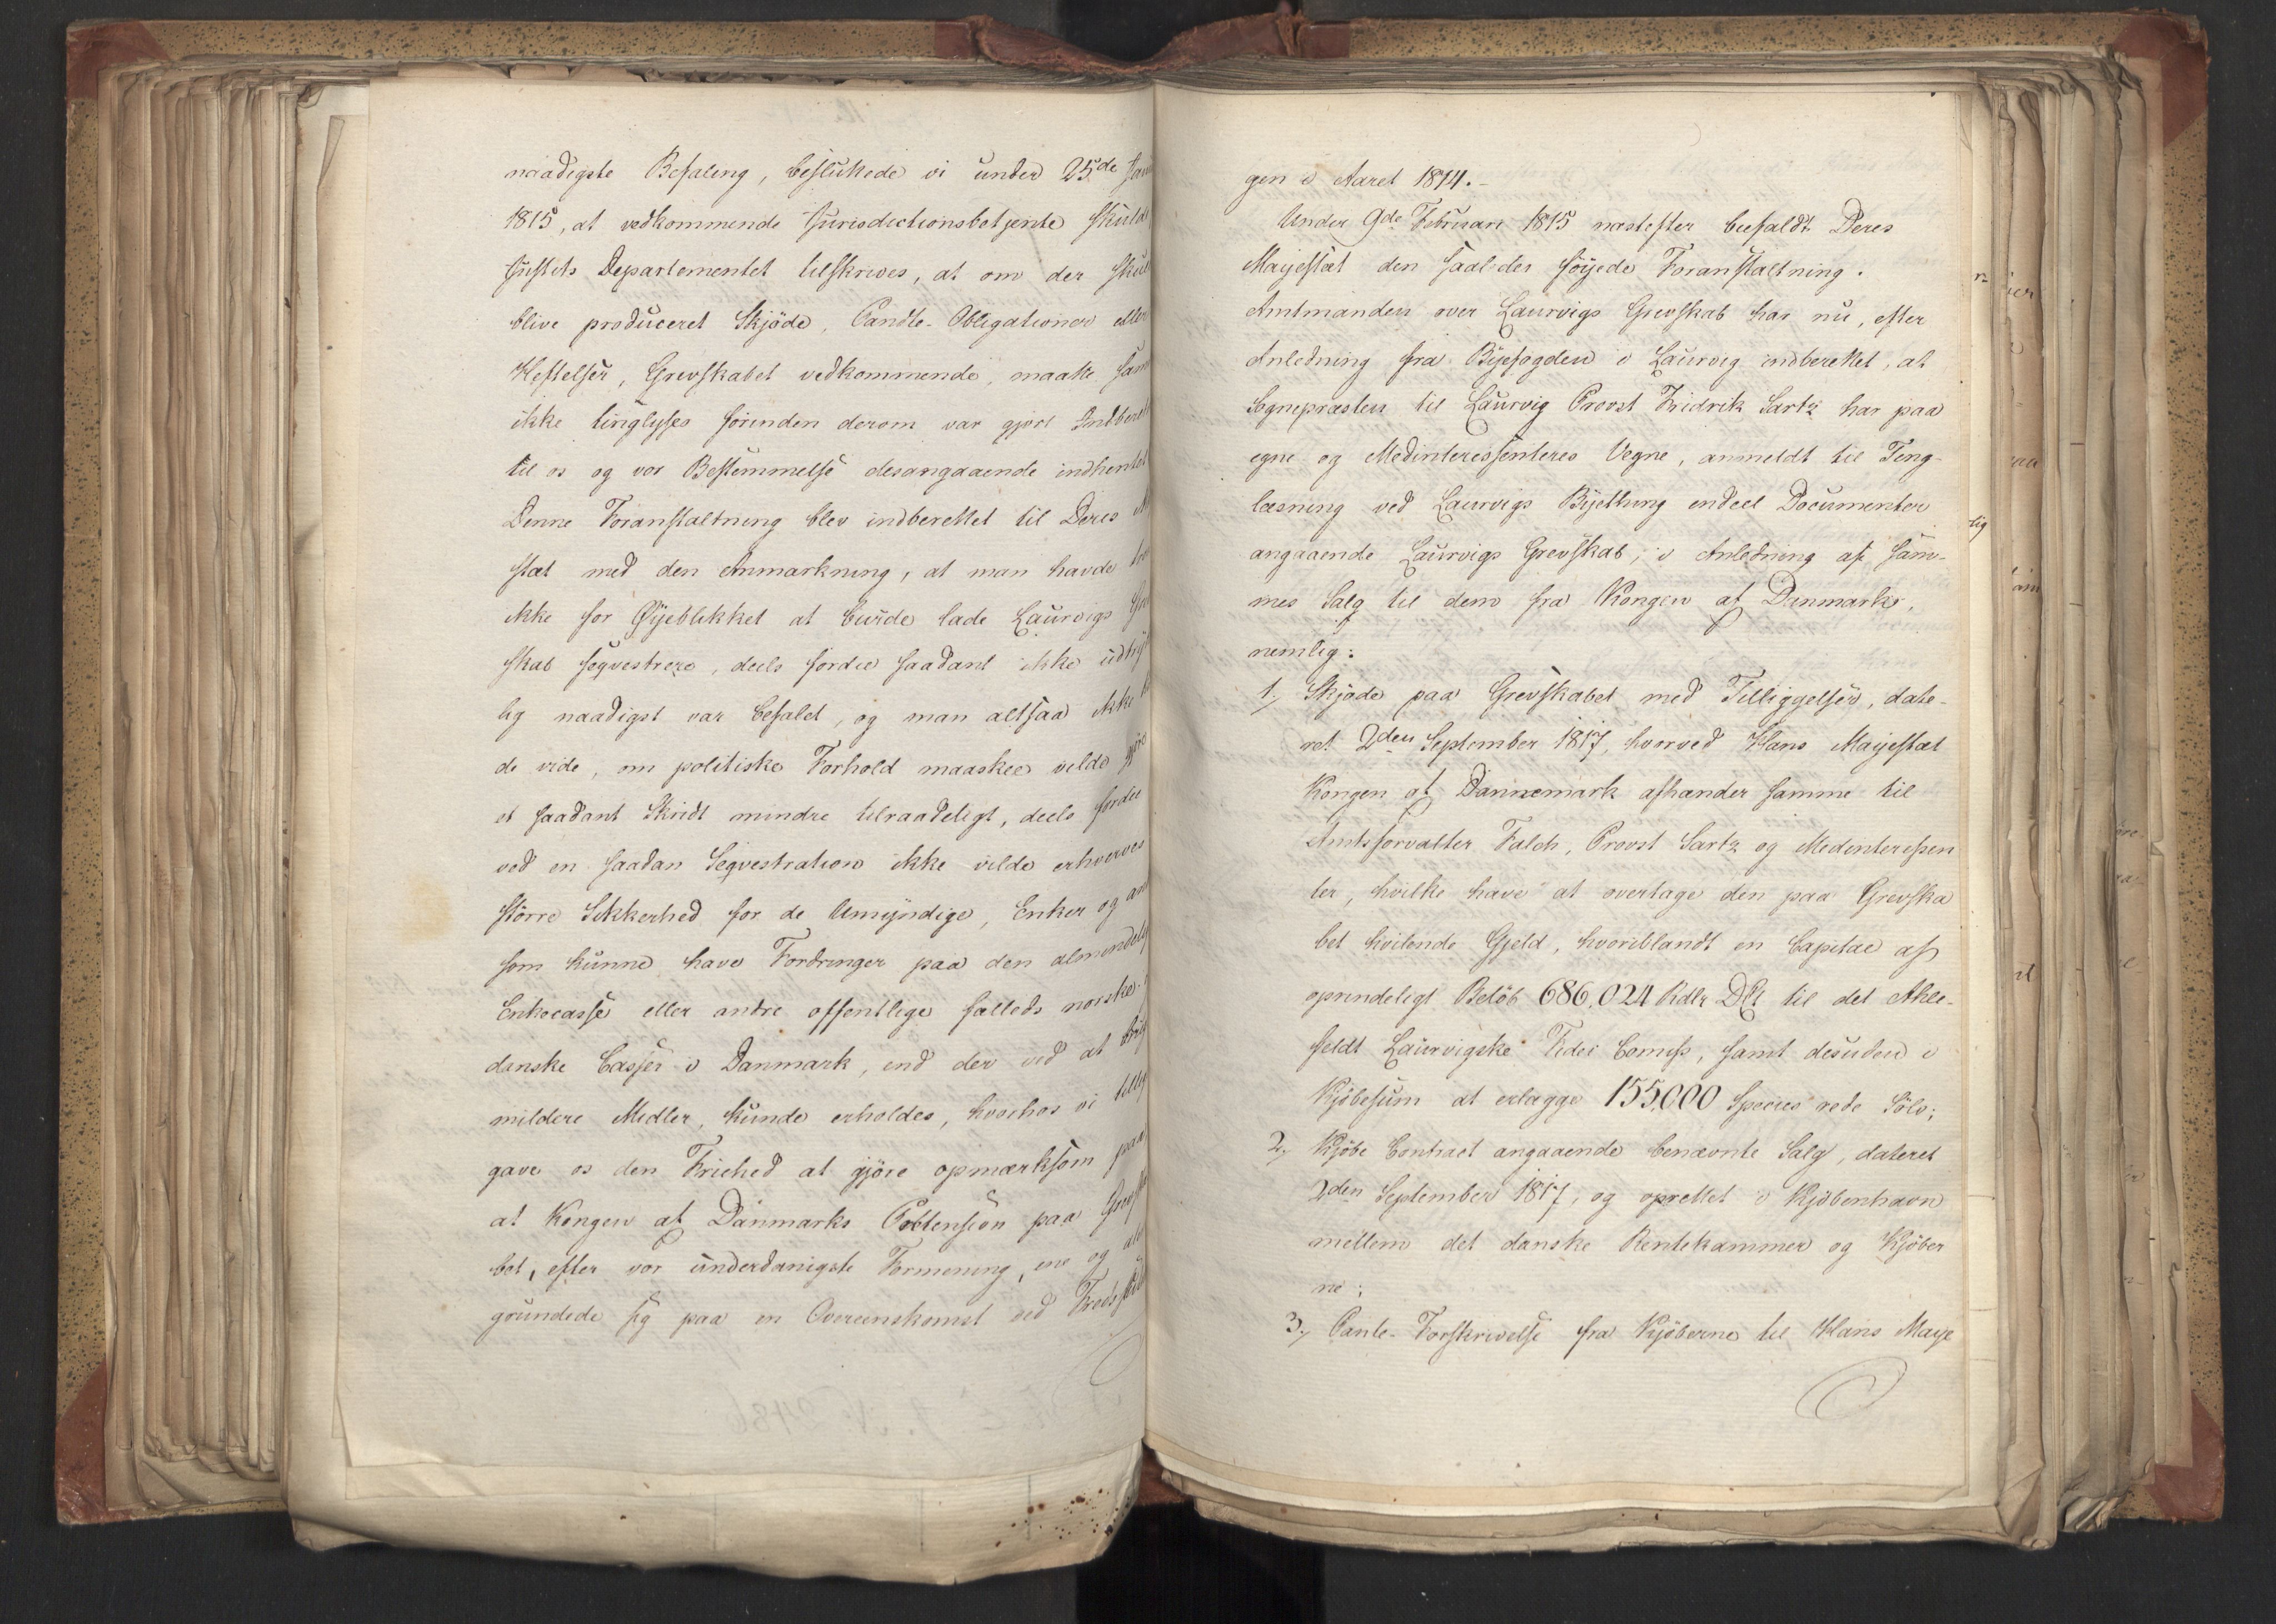 naadigste Befaling, besluttede vi under 25de
1815, at vedkommende Jurisdictionsbetjente skulde
Justits Departementet tilskrives, at om der skulde
blive produceret Skjöde, Pandte-Obligationer eller
Heftelser, Grevskabet vedkommende, maatte
ikke tinglyses förinden derom var gjort
til os og vor Bestemmelse desangaaende indhentet
Denne Foranstaltning blev indberettet til Deres
stæt med den Anmærkning, at man havde
ikke for Øyeblikket at burde lade Laurvigs
skab seqvestrere, deels fordie saadant ikke
lig naadigst var befalet, og man altsaa ikke
de vide, om politiske Forhold maaskee vilde gjöre
et saadant Skridt mindre tilraadeligt, deels fordie
ved en saadan Seqvestration ikke vilde erhverves
större Sikkerhed for de Umyndige, Enker og
som kunne have Fordringer paa den almindelig
Enkecasse eller andre offentlige fælleds norske-
danske Casser i Danmark, end der ved at
mildere Midler, kunde erholdes, hvorhos vi
gave os den Friehed at gjöre opmærksom paa
at Kongen af Danmarks Prætension paa
bet, efter vor underdanigste Formening, ene og
grundede sig paa en Overeenskomst ved
gen i Aaret 1814.-
Under 9de Februari 1815 næstefter biefaldt Deres
Mayestæt den saaledes föyede Foranstaltning.
Amtmanden over Laurvigs Grevskab har nu, efter
Anledning fra Byefogden i Laurvig indberettet, at
Sognepræsten til Laurvig Provst Fridrik Sartz har paa
egne og Medinteressenteres Vegne, anmeldt til Ting-
læsning ved Laurvigs Byething endeel Documenter
angaaende Laurvigs Grevskab, i Anledning af sam-
mes Salg til dem fra Kongen af Danmark,
nemlig:
1, Skjöde paa Grevskabet med Tilliggelser, date-
ret 2den September 1817, hvorved Hans Mayestæt
Kongen af Dannemark afhænder samme til
Amtsforvalter Falch, Provst Sartz og Medinteressen
ter, hvilke have at overtage den paa Grevska
bet hvilende Gjeld, hvoriblandt en Capital af
oprindeligt Belöb 686,024 Rdlr DCt til det Ahle-
feldt Laurvigske Fidei Comiss, samt desuden i
Kjöbesum at erlægge 155,000 Species rede Sölv;
2, Kjöbe Contract angaaende benævnte Salg, dateret
2den September 1817, og oprettet i Kjöbenhavn
mellem det danske Rentekammer og Kjöber
ne;
3, Pante-Forskrivelse fra Kjöberne til Hans Maye